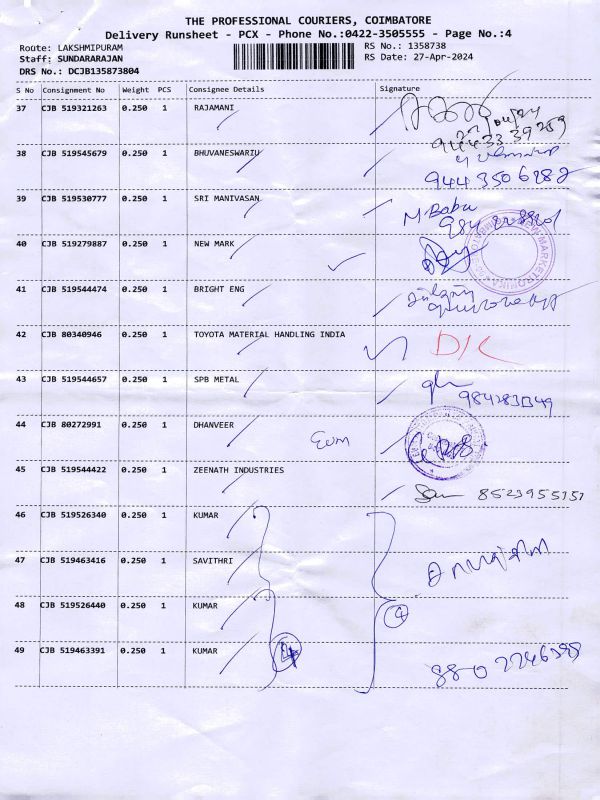 THE PROFESSIONAL COURIERS, COIMBATORE
Delivery Runsheet - PCX - Phone No.:0422-3505555 - Page No.:4
Route: LAKSHMIPURAM RS No.: 1358738
Staff: SUNDARARAJAN RS Date: 27-Apr-2024
DRS No.: DCJB135873804
S No Consignment No Weight PCS Consignee Details Signature
37 CJB 519321263 0.250 1 RAJAMANI
38 CJB 519545679 0.250 1 BHUVANESWARIU
944 350 6282
39 CJB 519530777 0.250 1 SRI MANIVASAN
M. Babu
40 CJB 519279887 0.250 1 NEW MARK
41 CJB 519544474 0.250 1 BRIGHT ENG
42 CJB 80340946 0.250 1 TOYOTA MATERIAL HANDLING INDIA D/C
43 CJB 519544657 0.250 1 SPB METAL
44 CJB 80272991 0.250 1 DHANVEER
45 CJB 519544422 0.250 1 ZEENATH INDUSTRIES
8523955151
46 CJB 519526340 0.250 1 KUMAR
47 CJB 519463416 0.250 1 SAVITHRI
48 CJB 519526440 0.250 1 KUMAR
4
49 CJB 519463391 0.250 1 KUMAR 4